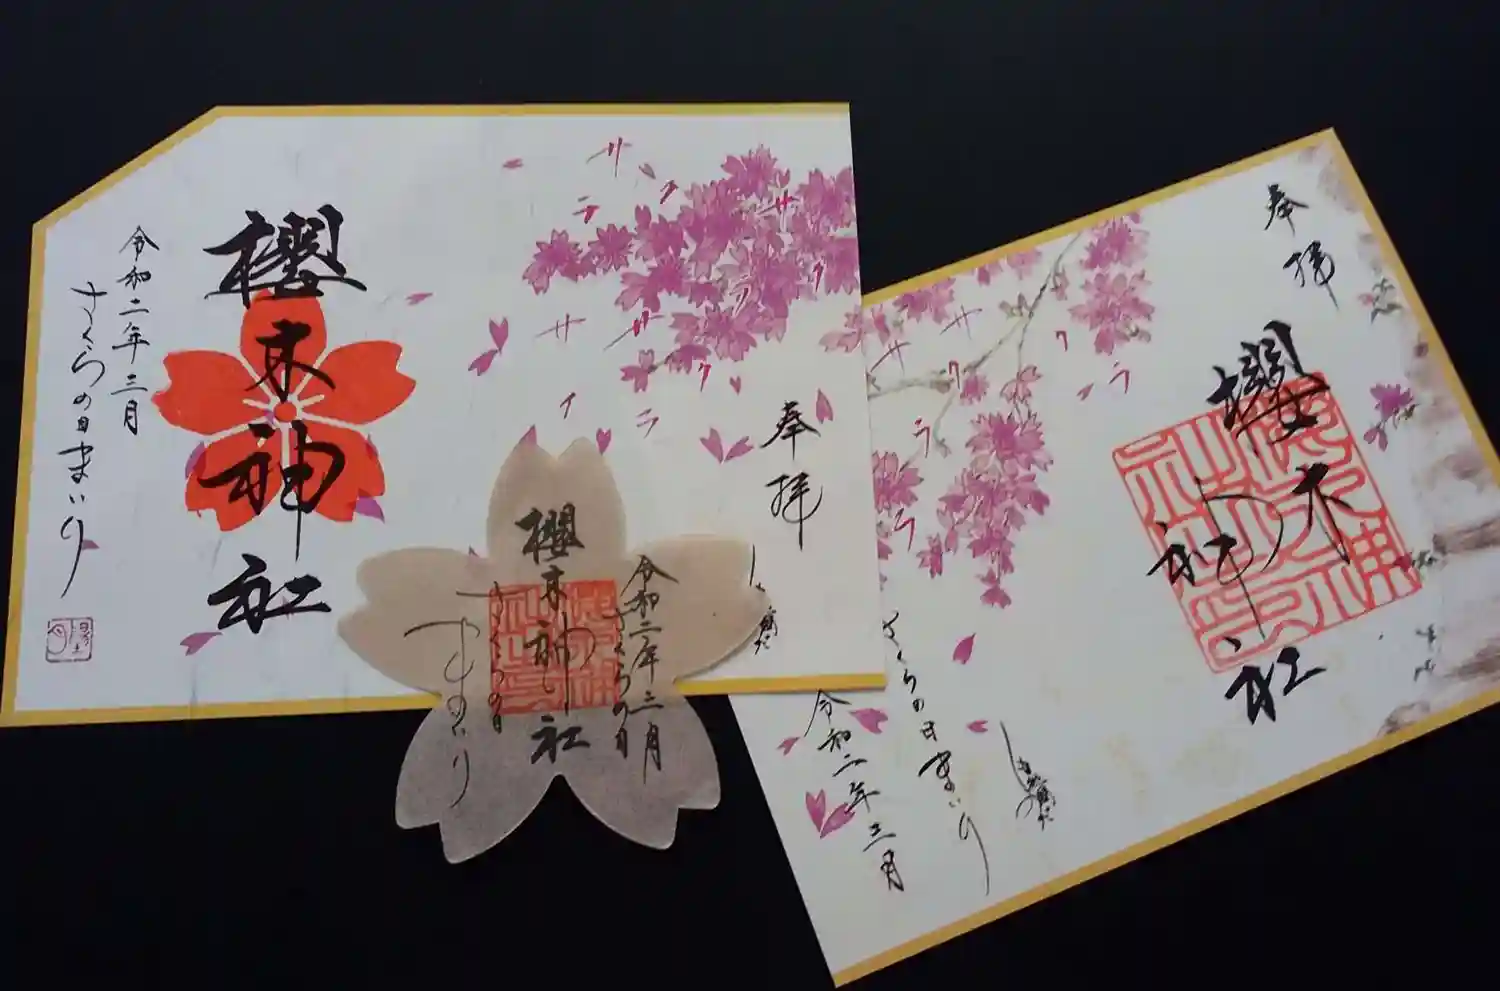 奉拝
櫻木神社
令和二年三月
さくらの日まいり
サ
ク
ラ
サ
ク
サ
サ
ク
イ
ラ
櫻木神社
令和二年三月
さくらの日
さくらの日
まいり
奉拝
櫻木神社
さくらの日まいり
令和二年三月
サ
サ
ク
ク
ラ
ラ
ラ